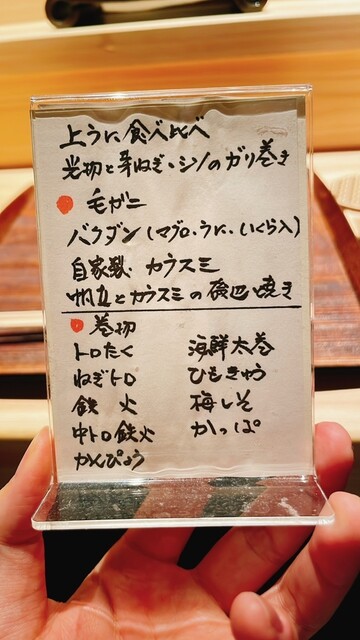 上うに食べ比べ
光物と芽ねぎ・シソのガリ巻き
毛ガニ
バクダン(マグロ、うに、いくら入)
自家製 カラスミ
帆立とカラスミの磯辺焼き
巻物
トロたく 海鮮太巻
ねぎトロ ひもきゅう
鉄火 梅しそ
中トロ鉄火 かっぱ
かんぴょう